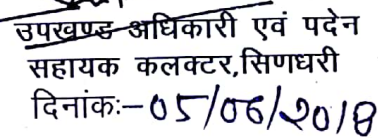 उपखण्ड अधिकारी एवं पदेन
सहायक कलक्टर,सिणधरी
दिनांकः–05/06/2018